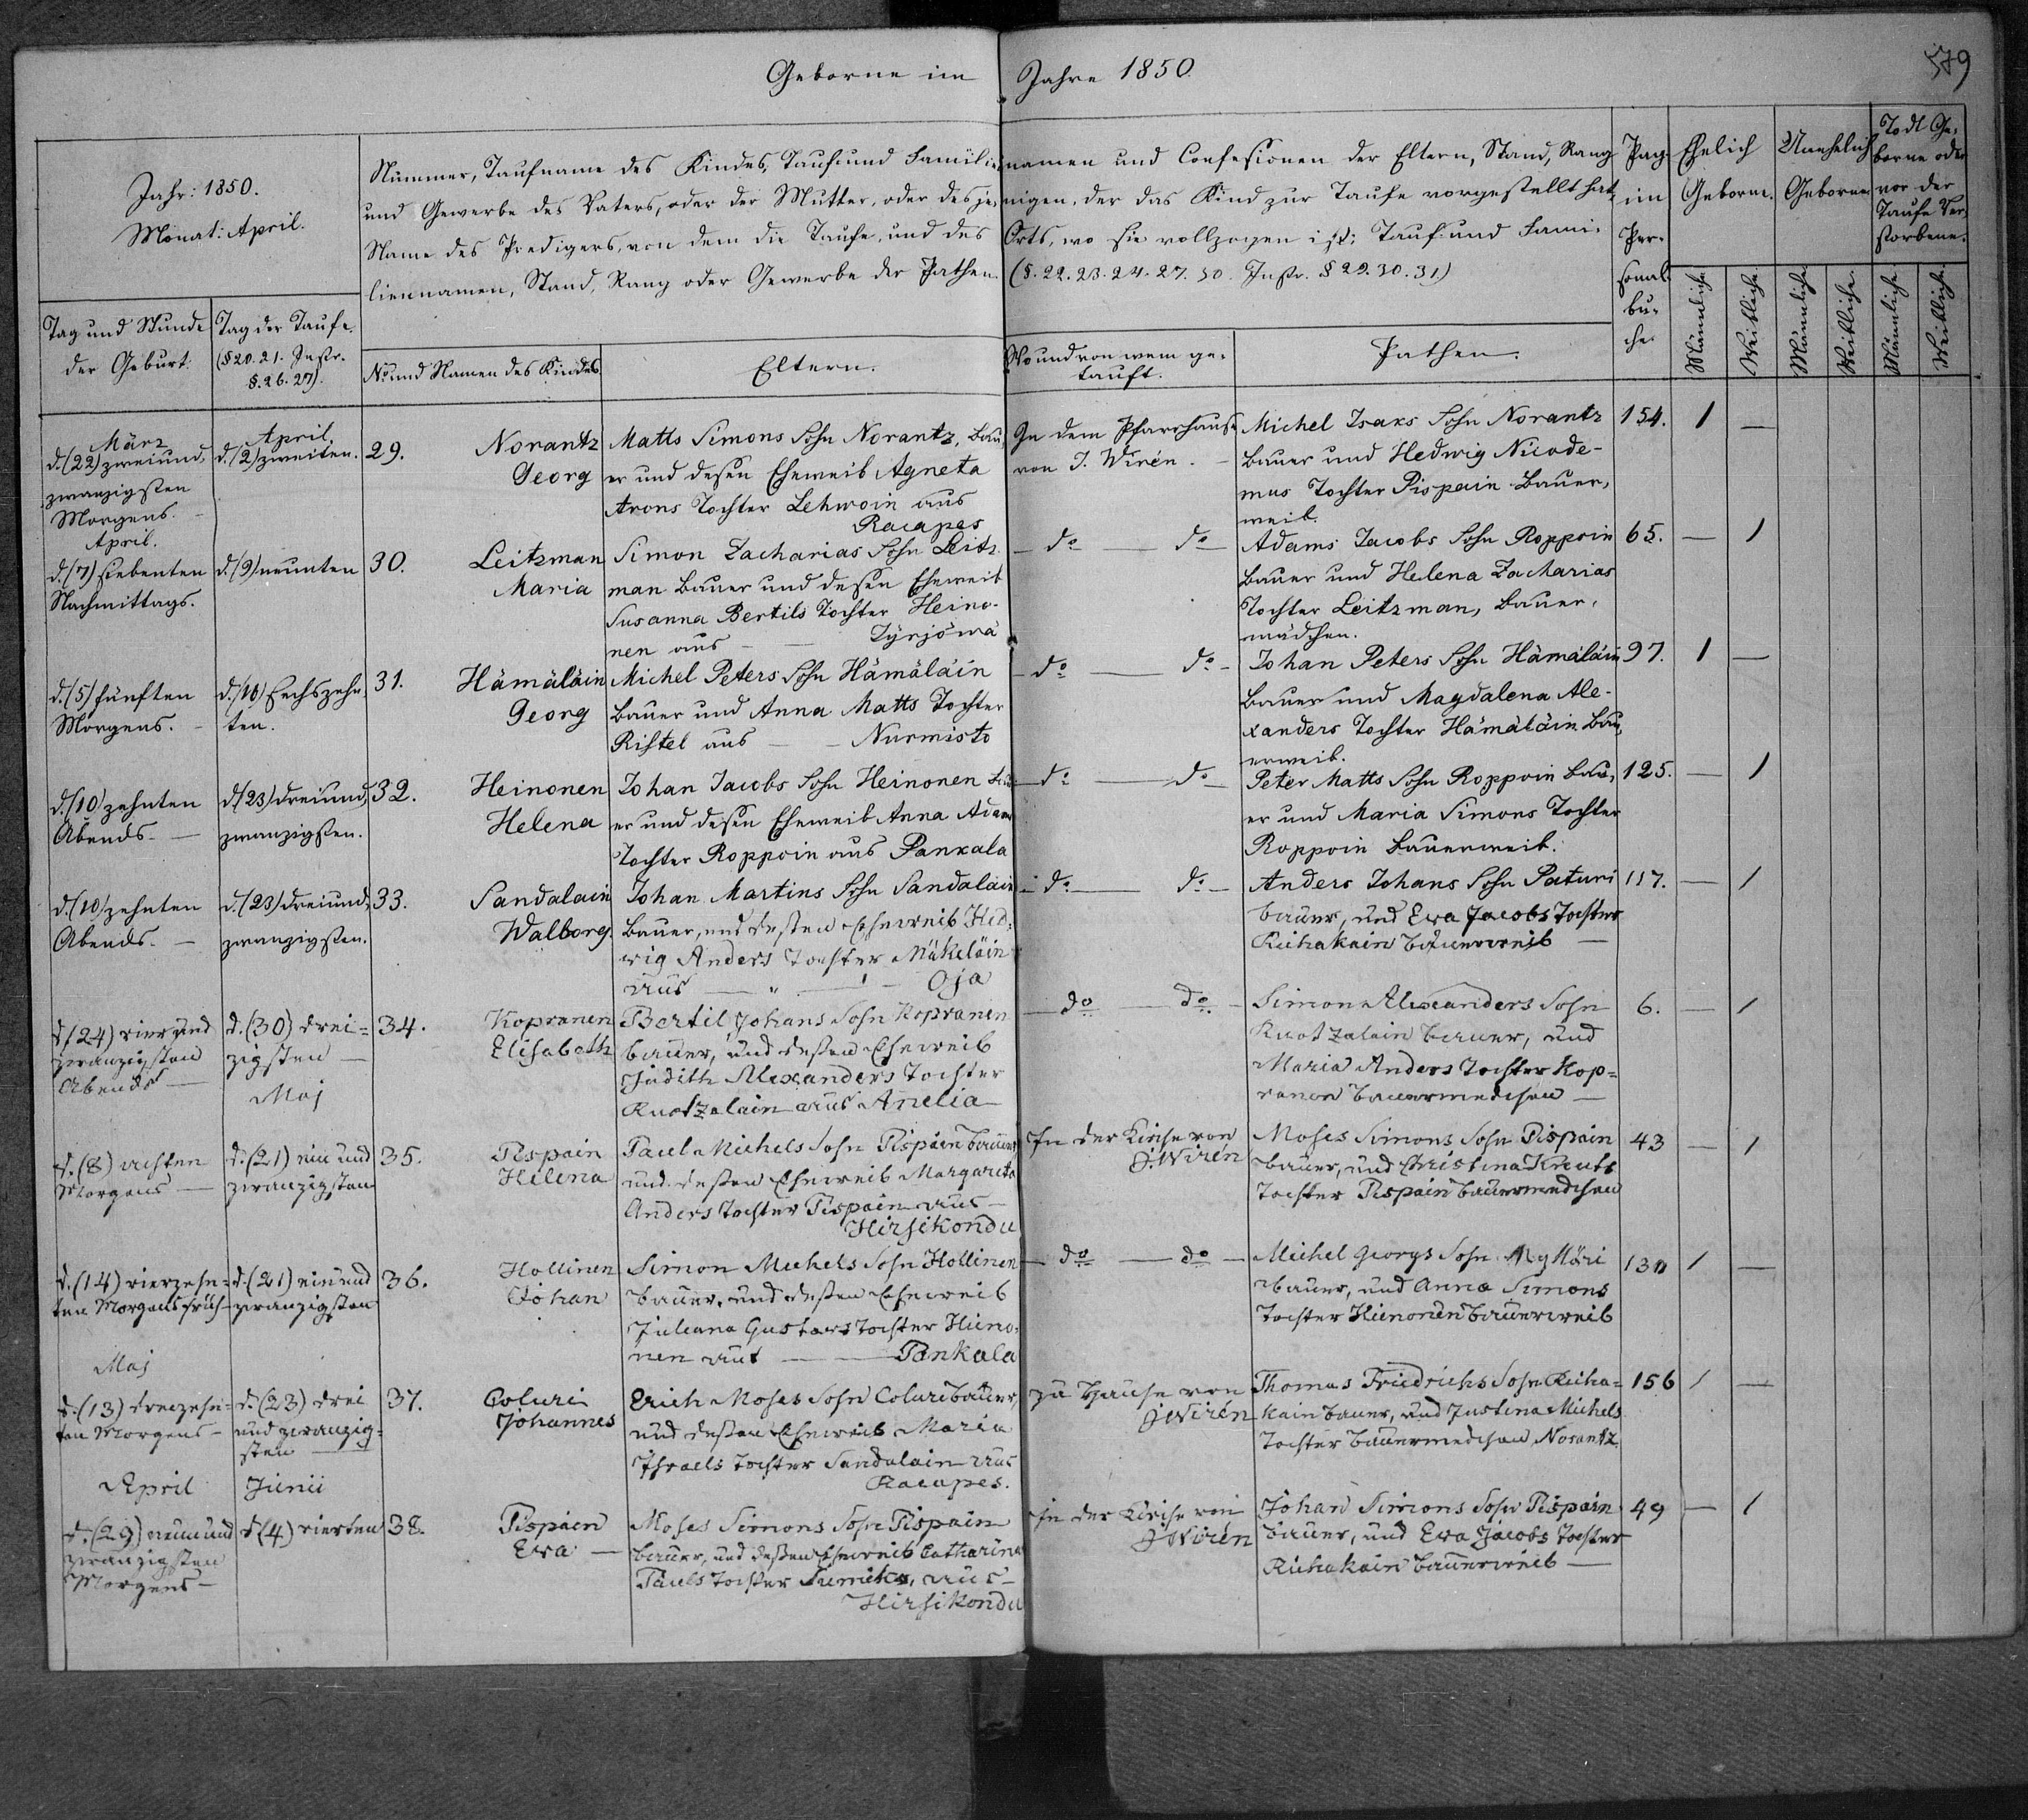 Geborne im Jahre 1850.
579
Jahr: 1850.
Monat: April.
Nummer, Taufname des Kindes, Tauf und Familiennamen und Confessionen der Eltern, Stand, Rang
und Gewerbe des Vaters, oder der Mutter, oder desjenigen, der das Kind zur Taufe vorgestellt hat,
Name des Predigers, von dem die Taufe, und des Orts, wo sie vollzogen ist; Tauf und Fami-
liennamen, Stand, Rang oder Gewerbe der Pathen. (§. 22. 23. 24. 27. 30. Instr. § 29. 30. 31.)
Pag.
im
Per-
sonal
bu-
che.
Ehelich
Geborne.
Unehelich
Geborne
Todt Ge-
borne oder
vor der
Taufe Ver-
storbene.
Tag und Stunde
der Geburt.
Tag der Taufe.
(§ 20. 21. Instr.
§. 26. 27).
No. und Namen des Kindes
Eltern.
Wo und von wem ge-
tauft.
Pathen.
Männliche
Weibliche
Männliche
Weibliche
Männliche
Weibliche
März
d. (22) zweiund-
zwanzigsten
Morgens. –
April.
d. (2) zweiten.
29.
Norantz
Georg
Matts Simons Sohn Norantz, Bau-
er und dessen Eheweib Agneta
Arons Tochter Lehwoin aus
Racapes
In dem Pfarrhause
von J. Wirén. –
Michel Isaks Sohn Norantz
Bauer und Hedwig Nicode-
mus Tochter Pispain Bauer-
weib.
154. 1 –
April.
d. (7) siebenten
Nachmittags.
d. (9) neunten
30.
Leitzman
Maria
Simon Zacharias Sohn Leitz-
man Bauer und dessen Eheweib
Susanna Bertils Tochter Heino-
nen aus – Tyrjöwä
– do – do –
Adams Jacobs Sohn Roppoin
Bauer und Helena Zacharias
Tochter Leitzman, Bauer-
mädchen.
65. – 1
d. (5) fünften
Morgens. –
d. (16) Sechszehn-
ten.
31.
Hämäläin
Georg
Michel Peters Sohn Hämäläin
Bauer und Anna Matts Tochter
Ristel aus – Nurmisto
– do – do –
Johan Peters Sohn Hämäläin
Bauer und Magdalena Ale-
xanders Tochter Hämäläin Bau-
erweib.
97. 1 –
d. (10) zehnten
Abends. –
d. (23) dreiund-
zwanzigsten.
32.
Heinonen
Helena
Johan Jacobs Sohn Heinonen Bau-
er und dessen Eheweib Anna Adams
Tochter Roppoin aus Pankala
– do – do –
Peter Matts Sohn Roppoin Bau-
er und Maria Simons Tochter
Roppoin Bauerweib.
125. – 1
d. (10) zehnten
Abends. –
d. (23) dreiund-
zwanzigsten.
33.
Sandalain
Walborg.
Johan Martins Sohn Sandalain
Bauer, und dessen Eheweib Hed-
wig Anders Tochter Mäkeläin
aus – " – Oja
– do – do –
Anders Johans Sohn Paturi
Bauer, und Ewa Jacobs Tochter
Riihakain Bauerweib –
117. – 1
d. (24) vierund
zwanzigsten
Abends –
d. (30) drei-
zigsten –
34.
Kopranen
Elisabeth
Bertil Johans Sohn Kopranen
Bauer, und dessen Eheweib
Judith Alexanders Tochter
Ruotzalain aus Anelia
– do – do –
Simon Alexanders Sohn
Ruotzalain Bauer, und
Maria Anders Tochter Kop-
ranen Bauermedchen –
6. – 1
d. (8) achten
Morgens –
Maj
d. (21) ein und
zwanzigsten
35.
Pispain
Helena
Paul Michels Sohn Pispain Bauer
und dessen Eheweib Margareta
Anders Tochter Pispain aus –
Hirsikondu
In der Kirche von
J. Wirén
Moses Simons Sohn Pispain
Bauer, und Christina Knuts
Tochter Pispain Bauermedchen
43 – 1
d. (14) vierzehn-
ten Morgens früh –
d. (21) ein und
zwanzigsten
36.
Hollinen
Johan
Simon Michels Sohn Hollinen
Bauer, und dessen Eheweib
Juliana Gustavs Tochter Heino-
nen aus – Pankala
– do – do –
Michel Georgs Sohn Mylläri
Bauer, und Anna Simons
Tochter Heinonen Bauerweib
130 1 –
Maj
d. (13) dreizehn-
ten Morgens –
d. (23) drei
und zwanzig-
sten
37.
Coluri
Johannes
Erich Moses Sohn Coluri Bauer,
und dessen Eheweib Maria
Israels Tochter Sandalain aus
Racapes.
zu Hause von
J Wirén
Thomas Friedrichs Sohn Riiha-
kain Bauer, und Justina Michels
Tochter Bauermedchen Norantz.
156 1 –
April
d. (29) neun und
zwanzigsten
Morgens –
Junii
d. (4) vierten
38.
Pispain
Ewa –
Moses Simons Sohn Pispain
Bauer, und dessen Eheweib Catharina
Pauls Tochter aus –
Hirsikondu
In der Kirche von
J Wirén
Johan Simons Sohn Pispain
Bauer, und Ewa Jacobs Tochter
Riihakain Bauerweib –
49 – 1